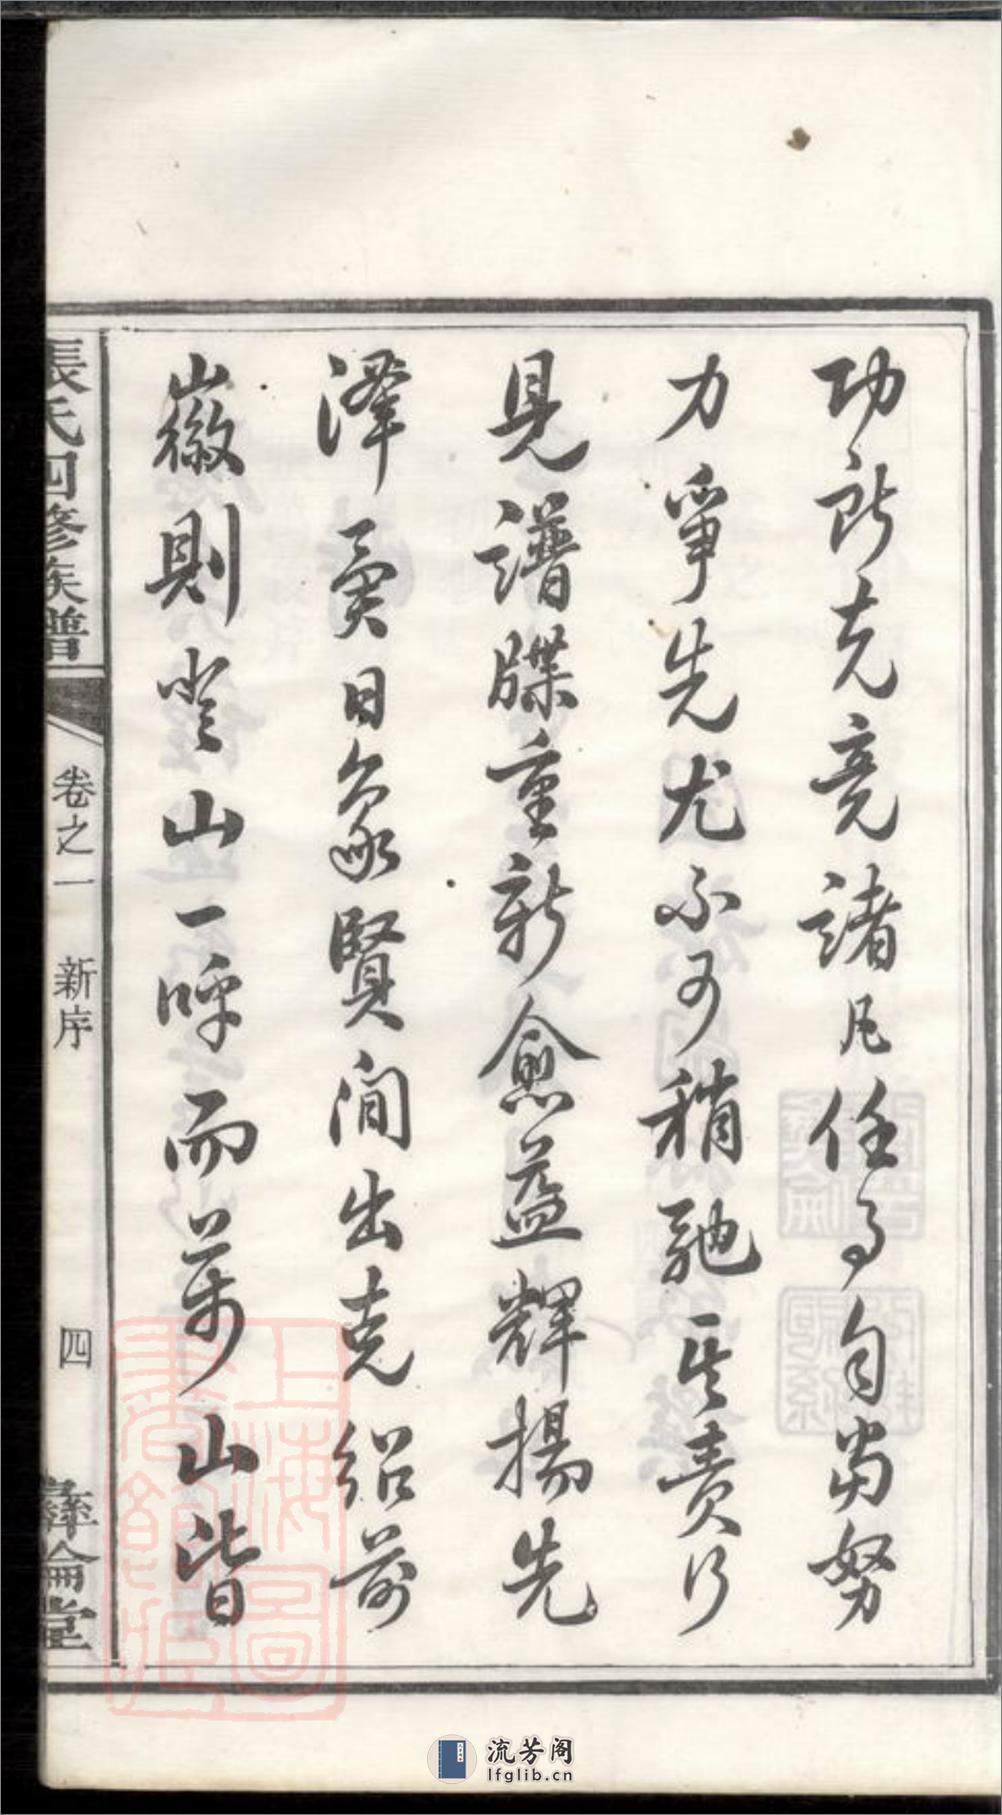 功所克竟諸凡任事自當努
力爭先尤不可稍馳其責行
見譜牒重新愈益輝揚先
澤奚日象賢間出克紹前
徽則登山一呼而萬山皆
張氏四修族譜
卷之一 新序
四
彝倫堂
上海圖書館藏
流芳阁
lfglib.cn